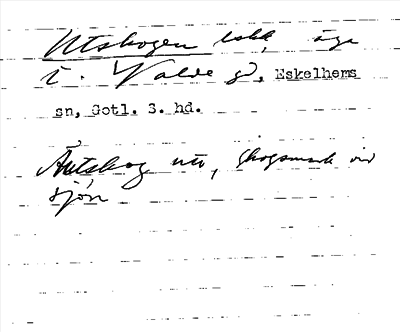 Utskogen
t. Valde gd, Eskelhems
sn, Gotl. S. hd.
Äutskog skogsmark vid
sjön